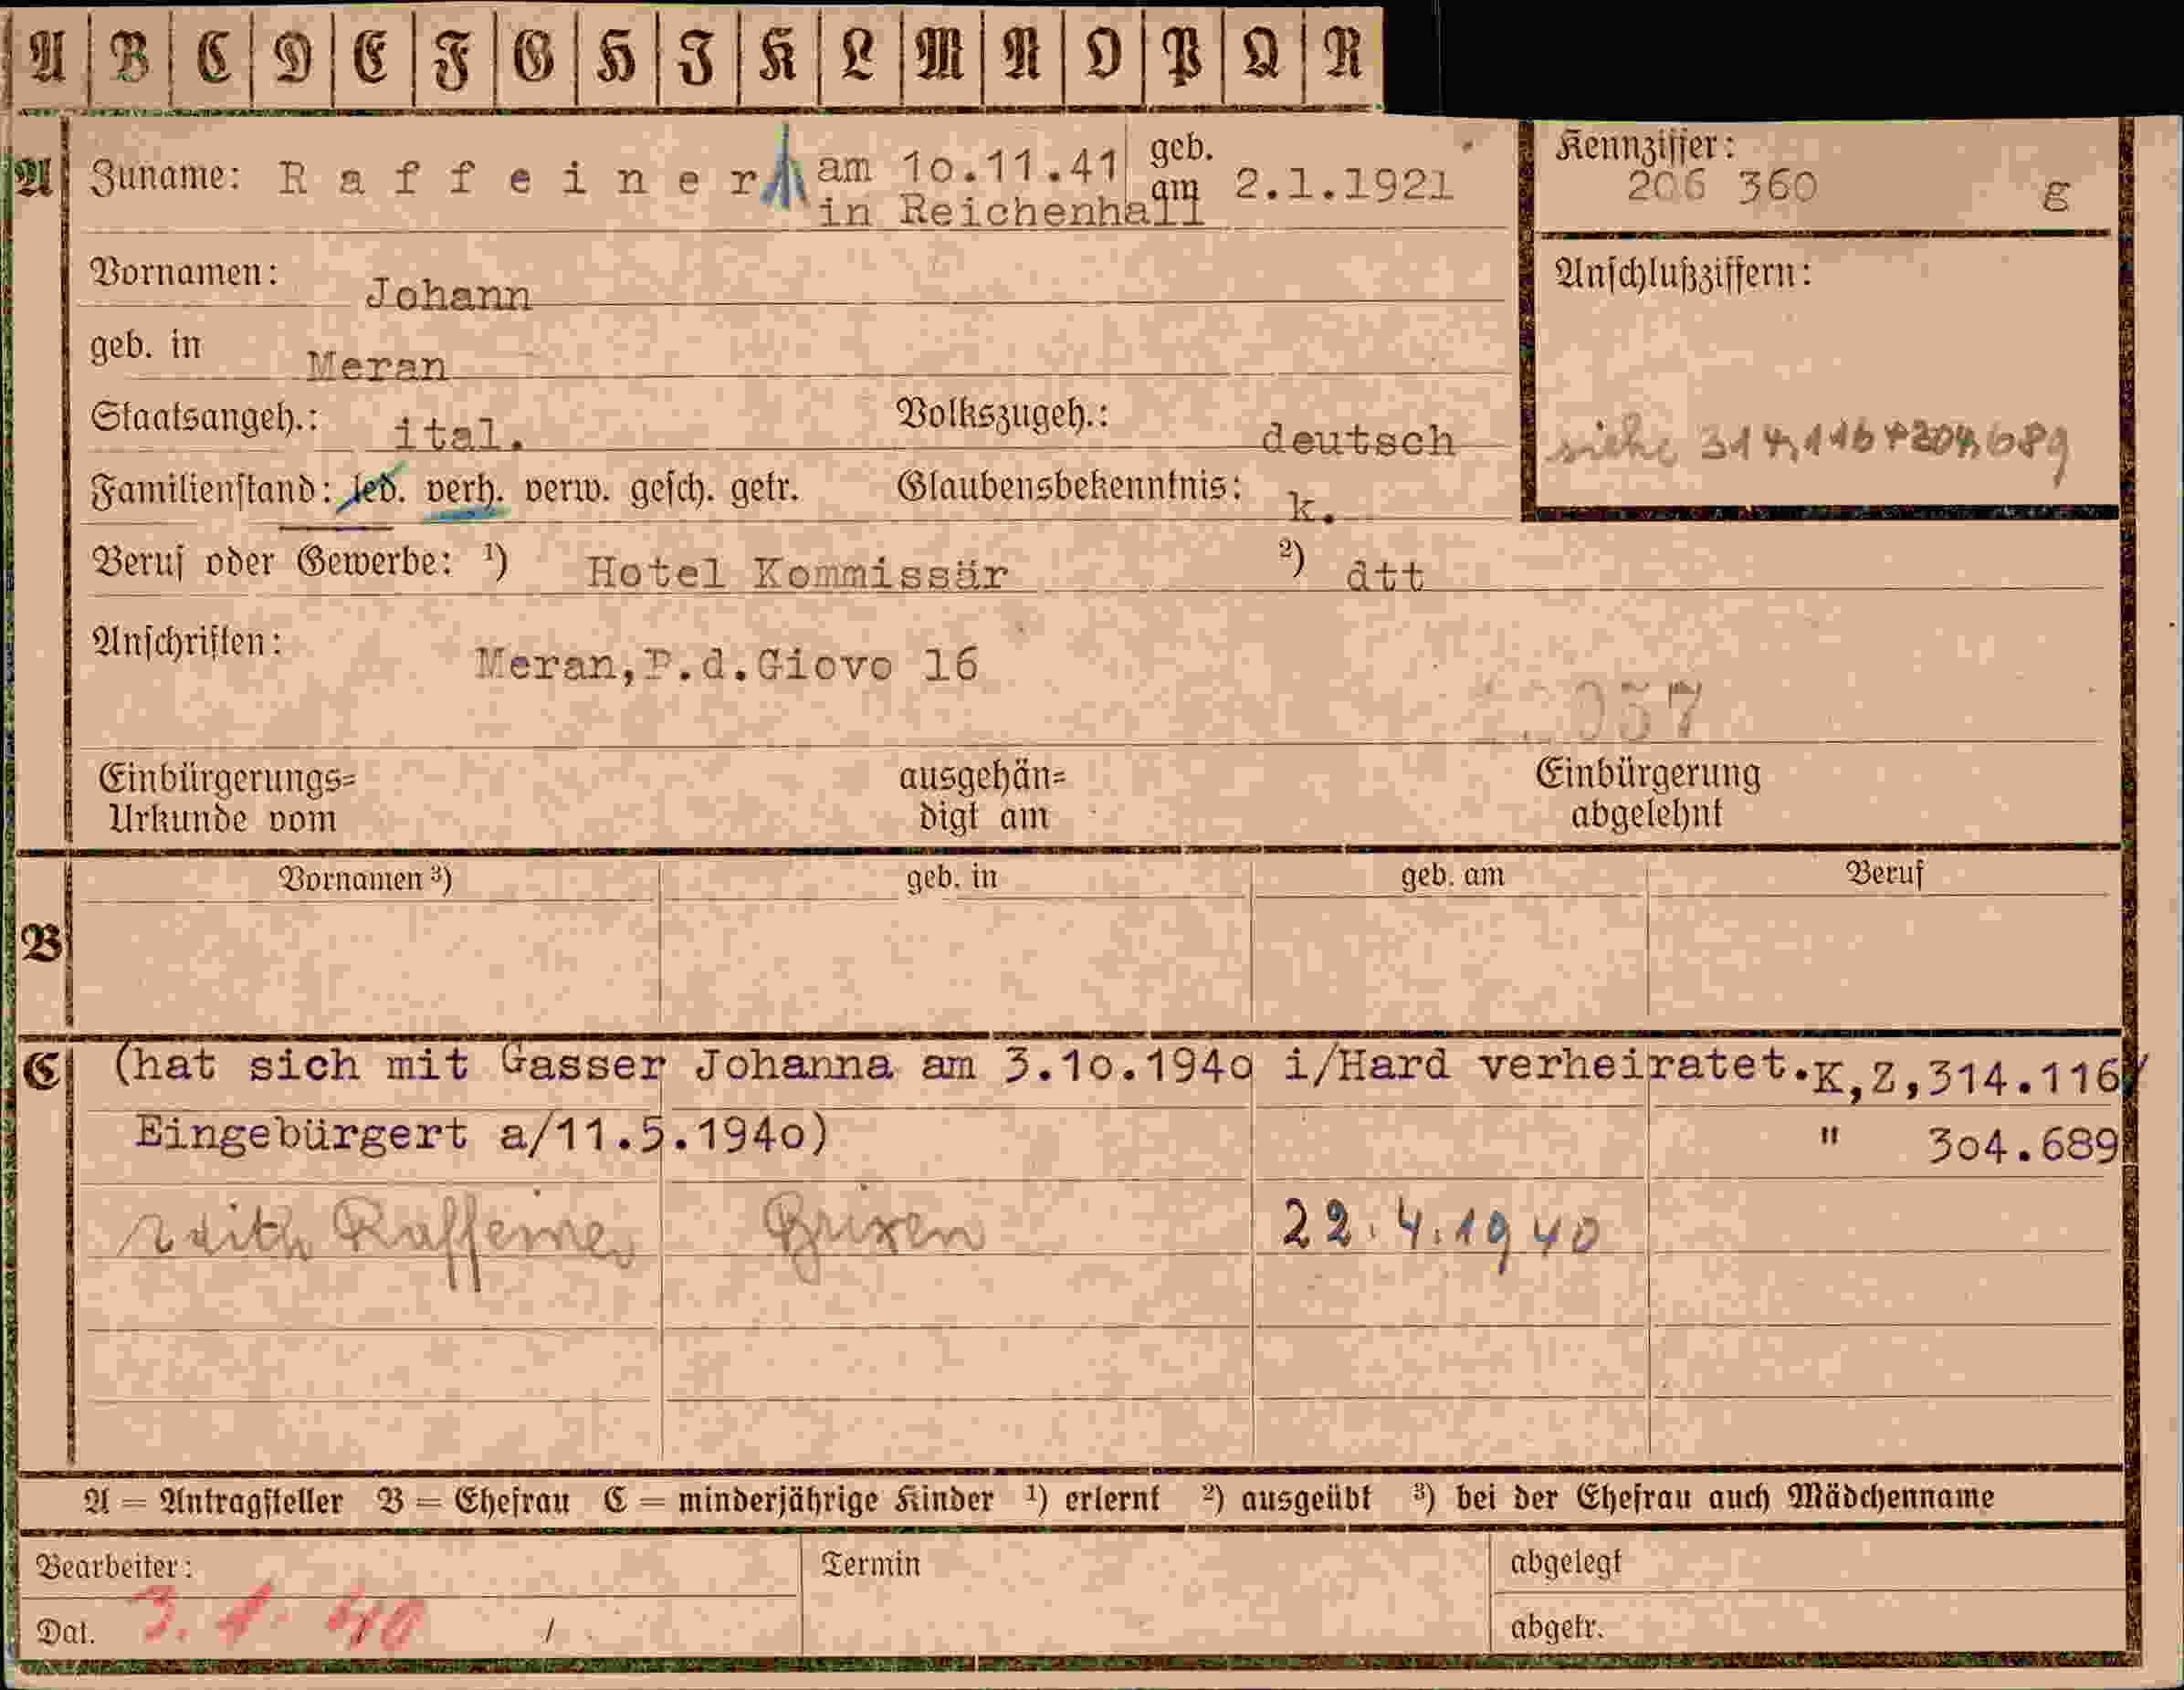 A B C D E F G H I K L M N O P Q R
A Zuname: Raffeiner am 10.11.41 geb. am 2.1.1921
in Reichenhall
Kennziffer:
206 360 g
Vornamen: Johann
Anschlußziffern:
geb. in Meran
Staatsangeh.: ital. Volkszugeh.: deutsch
siehe 314,116 + 304,689
Familienstand: led. verh. verw. gesch. getr. Glaubensbekenntnis: k.
Beruf oder Gewerbe: ¹) Hotel Kommissär ²) dtt
Anschriften: Meran,P.d.Giovo 16
057
Einbürgerungs= ausgehän= Einbürgerung
Urkunde vom digt am abgelehnt
Vornamen ³) geb. in geb. am Beruf
B
C (hat sich mit Gasser Johanna am 3.10.1940 i/Hard verheiratet. K,Z,314.116
Eingebürgert a/11.5.1940) " 304.689
Edith Raffeiner Brixen 22.4.1940
A = Antragsteller B = Ehefrau C = minderjährige Kinder ¹) erlernt ²) ausgeübt ³) bei der Ehefrau auch Mädchenname
Bearbeiter: Termin abgelegt
Dat. 3. 1. 40 / abgetr.